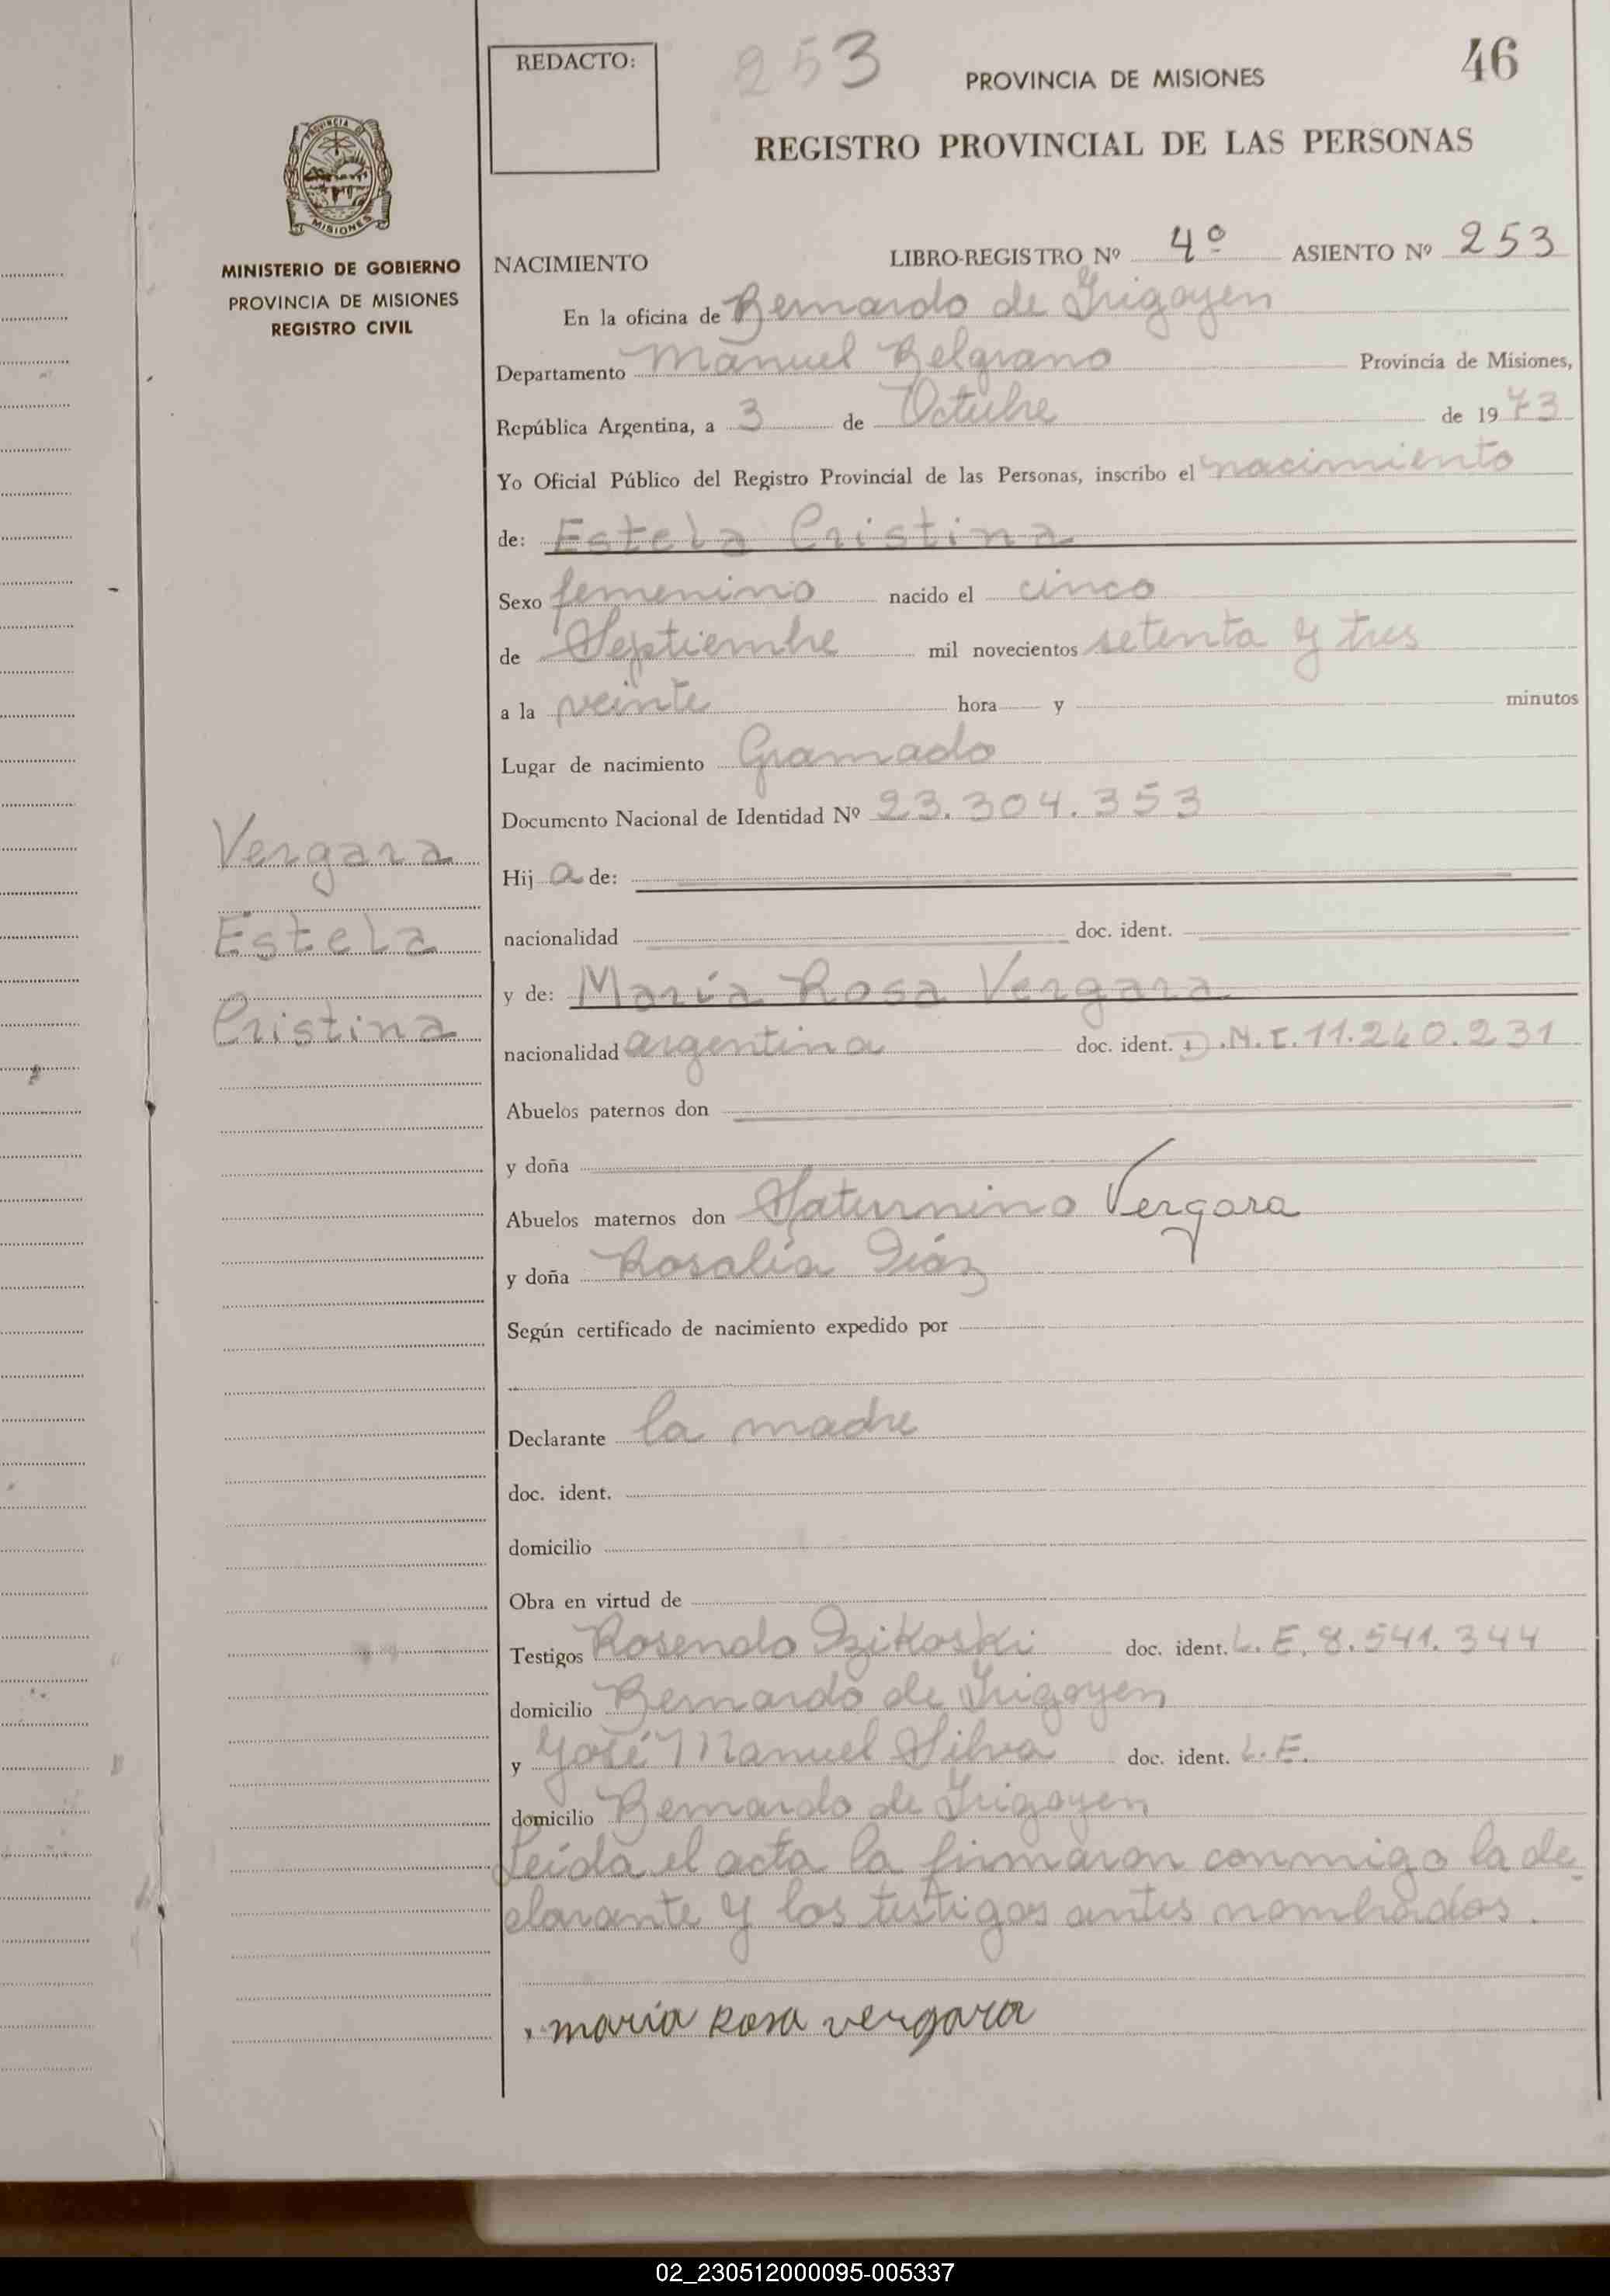 REDACTO:
253
PROVINCIA DE MISIONES
46
REGISTRO PROVINCIAL DE LAS PERSONAS
PROVINCIA DE
MISIONES
MINISTERIO DE GOBIERNO
PROVINCIA DE MISIONES
REGISTRO CIVIL
NACIMIENTO LIBRO-REGISTRO Nº 4º ASIENTO Nº 253
En la oficina de Bernardo de Irigoyen
Departamento Manuel Belgrano Provincia de Misiones,
República Argentina, a 3 de Octubre de 1973
Yo Oficial Público del Registro Provincial de las Personas, inscribo el nacimiento
de: Estela Cristina
Sexo femenino nacido el cinco
de Septiembre mil novecientos setenta y tres
a la veinte hora y minutos
Lugar de nacimiento Gramado
Documento Nacional de Identidad Nº 23.304.353
Vergara
Estela
Cristina
Hija de:
nacionalidad doc. ident.
y de: María Rosa Vergara
nacionalidad argentina doc. ident. D.N.I. 11.260.231
Abuelos paternos don
y doña
Abuelos maternos don Saturnino Vergara
y doña Rosalía Diáz
Según certificado de nacimiento expedido por
Declarante la madre
doc. ident.
domicilio
Obra en virtud de
Testigos Rosendo Dzikoski doc. ident. L.E. 8.541.344
domicilio Bernardo de Irigoyen
y José Manuel Silva doc. ident. L.E.
domicilio Bernardo de Irigoyen
Leída el acta la firmaron conmigo la de-
clarante y los testigos antes nombrados.
maria Rosa vergara
02_230512000095-005337